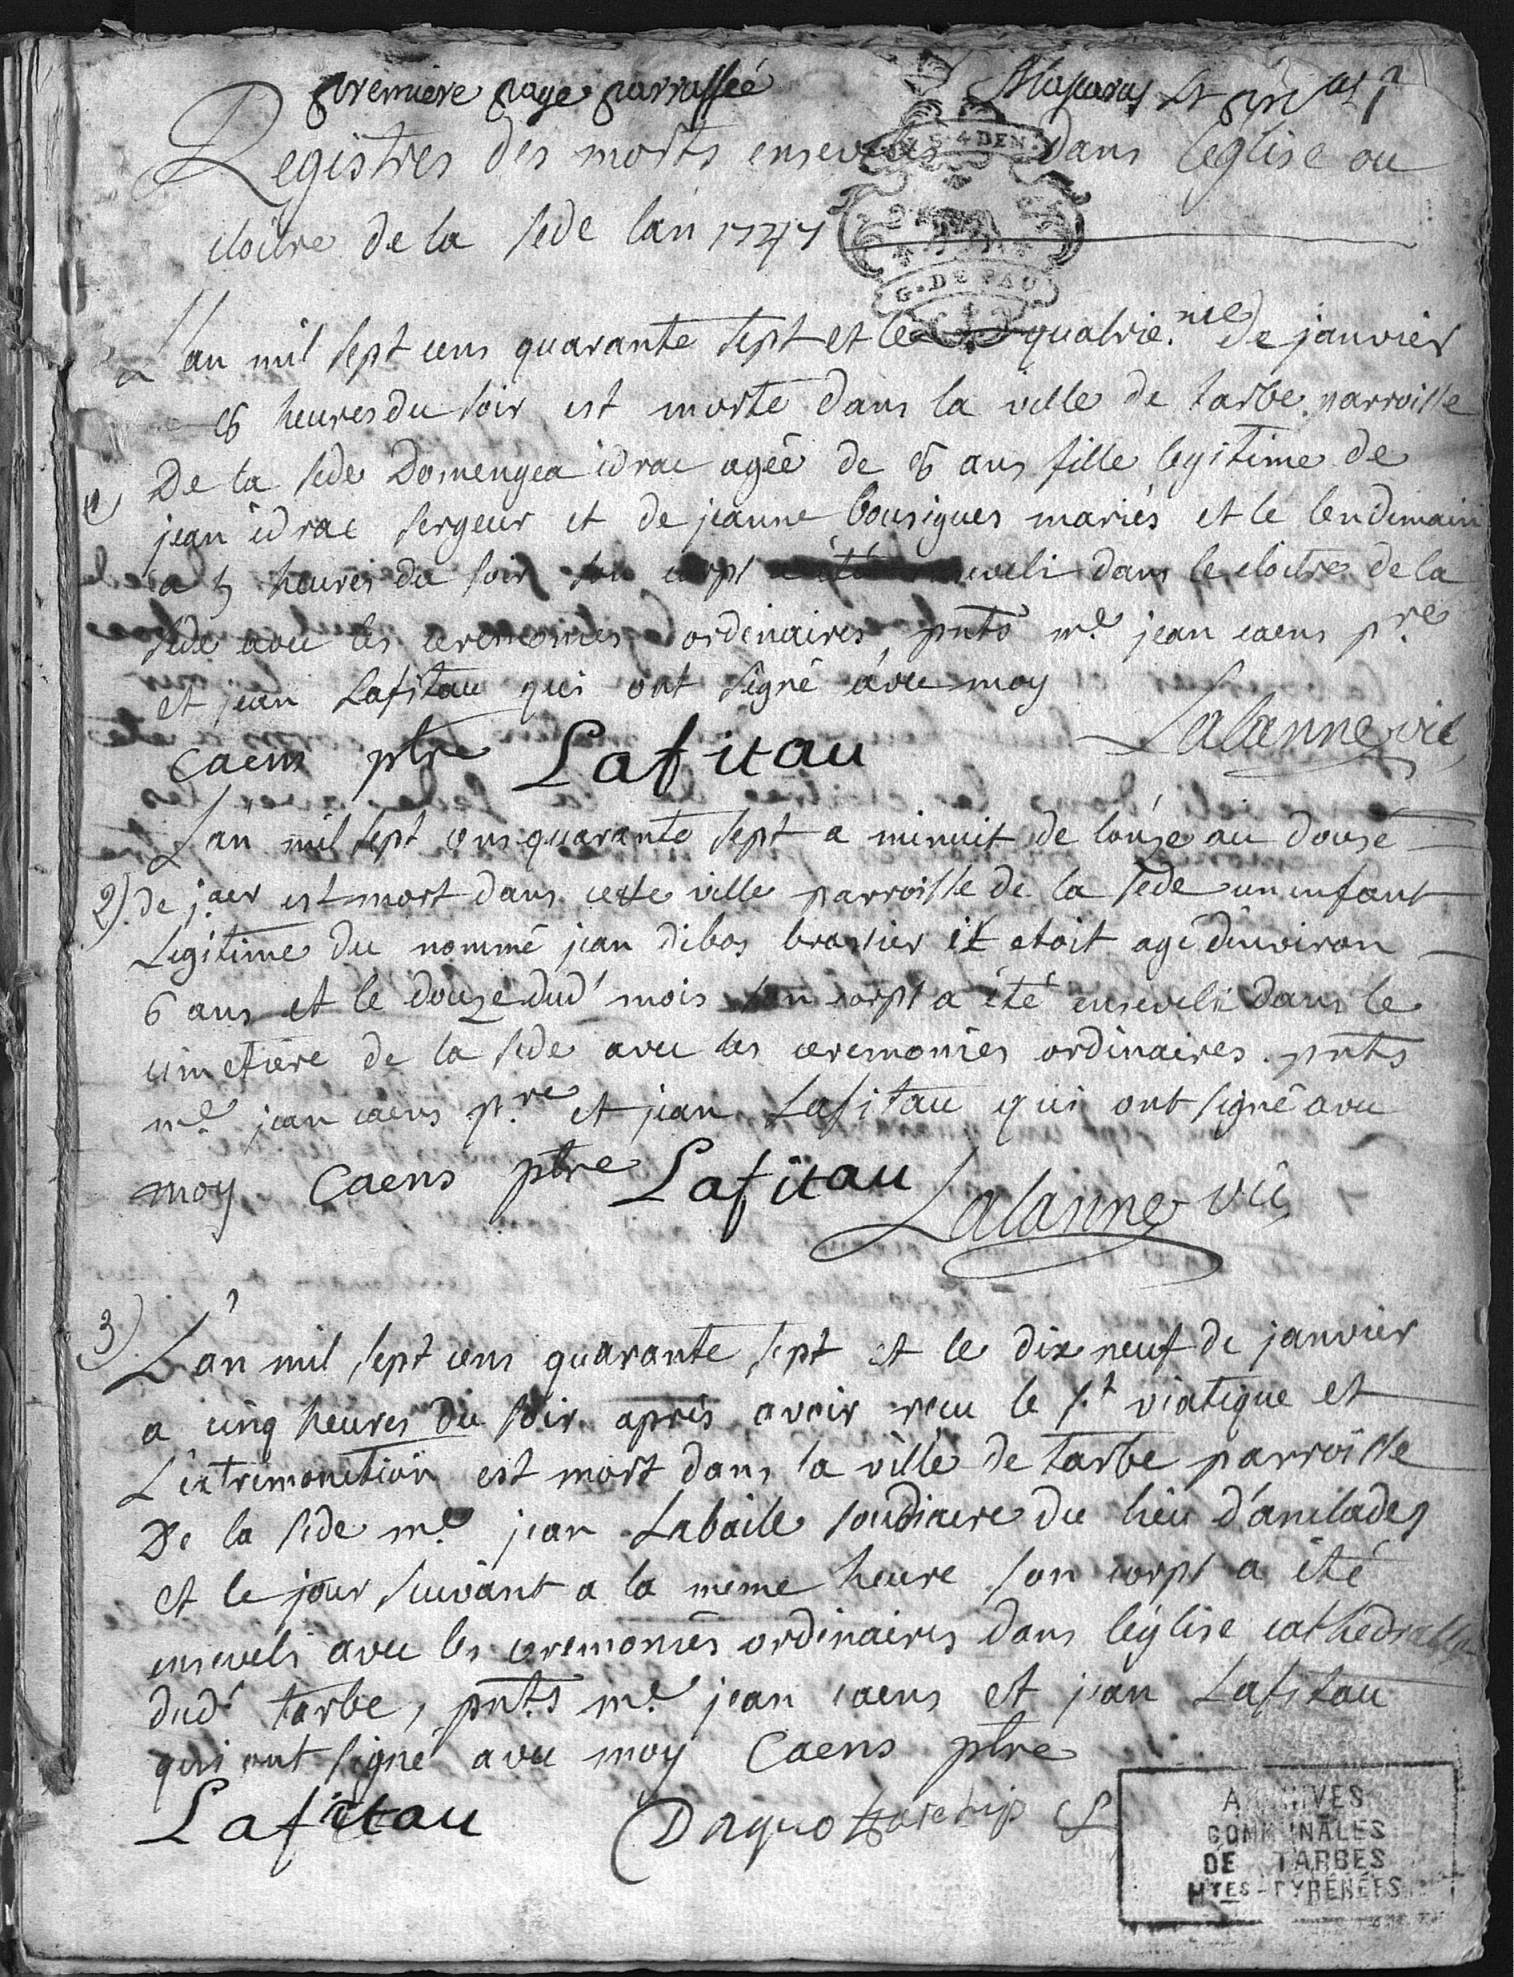 premiere page parraffée
Registres des morts ensevelis dans leglise ou
4 DEN.
cloitre de la sede lan 1747
G. DE PAU
l'an mil sept cens quarante sept et le quatrie.me de janvier
a 6 heures du soir est morte dans la ville de tarbe parroisse
1) De la sede Domengea idrac agée de 6 ans fille legitime de
jean idrac sergeur et de jeanne bousigues mariés et le lendemain
a 5 heures du soir son corps a été enseveli dans le cloitre de la
sede avec les ceremonies ordinaires pnts me jean caens p.re
et jean Lafitau qui ont signé avec moy
Caens ptre Lafitau Lalanne vic
L'an mil sept cens quarante sept a minuit de lonze au douse
2) de j.aer est mort dans cette ville parroisse de la sede un enfant
Legitime du nommé jean dibos brassier il etoit agé d'environ
6 ans et le douze dud' mois son corps a été enseveli dans le
cimetiere de la sede avec les ceremonies ordinaires pnts
me jean caens p.re et jean Lafitau qui ont signé avec
moy Caens ptre Lafitau Lalanne vic
3) L'an mil sept cens quarante sept et le dix neuf de janvier
a cinq heures du soir apris avoir recu le s.t viatique et
L'extrimonction est mort dans la ville de tarbe parroisse
De la sede me jean Labaile soudiacre du lieu
et le jour suivant a la meme heure son corps a été
enseveli avec les ceremonies ordinaires dans léglise cathedralle
dud' tarbe, pnts me jean caens et jean Lafitau
qui ont signé avec moy Caens ptre
Lafitau
ARCHIVES
COMMUNALES
DE TARBES
HTES-PYRÉNÉES